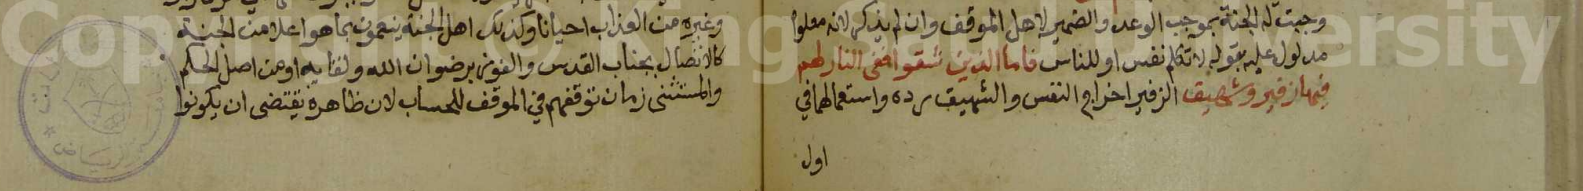 وجبت له الجنة بموجب الوعد والضمير لاهل الموقف وان لم يذكر لانه معلوم
مدلول عليه بقوله لا تكلم نفس او للناس فاما الذين شقوا ففى النار لهم
فيها زفير وشهيق الزفير اخراج النفس والشهيق رده واستعمالهما في
اول
وغيره من العذاب احيانا وكذلك اهل الجنة ينعمون بما هو اعلا من الجنة
كالاتصال بجناب القدس والفوز برضوان الله ولقايه او من اصل الحكم
والمستثنى زمان توقفهم في الموقف للحساب لان ظاهره يقتضى ان يكونوا